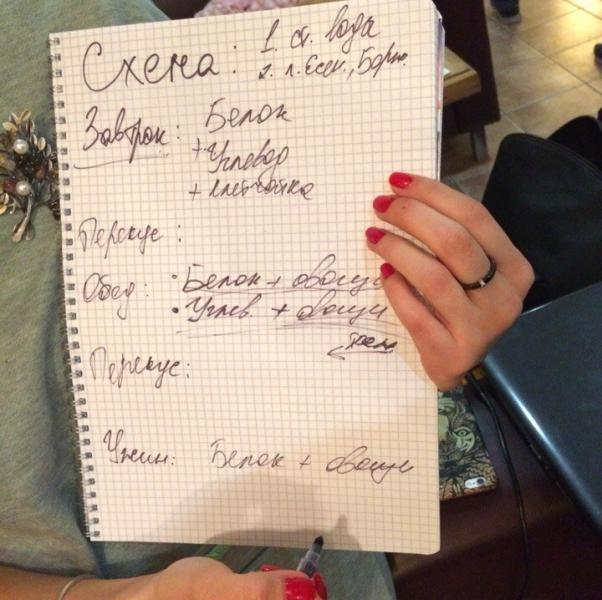 Схема: 1. ст. вода
2. л. Есен., Борж.
Завтрак: Белок
+ Углевод
+ клетчатка
Перекус:
Обед: • Белок + овощи
• Углев. + овощи
Перекус:
Ужин: Белок + овощи